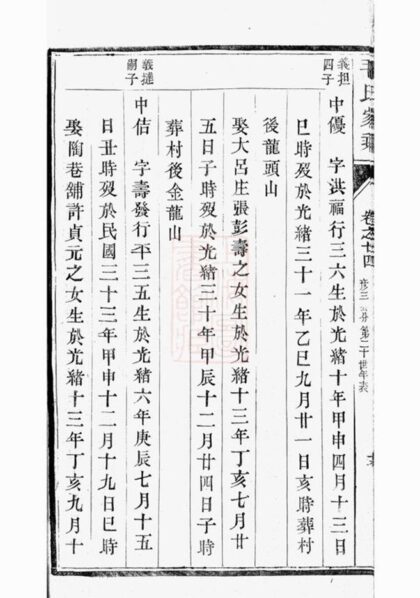 卷之廿四
義担
四子
中優 字洪福行三六生於光緒十年甲申四月十三日
巳時歿於光緒三十一年乙巳九月廿一日亥時葬村
後龍頭山
娶大呂庄張彭壽之女生於光緒十三年丁亥七月廿
五日子時歿於光緒三十年甲辰十二月廿四日子時
葬村後金龍山
義撻
嗣子
中佶 字壽發行平三五生於光緒六年庚辰七月十五
日丑時歿於民國三十三年甲申十二月十九日巳時
娶陶巷舖許貞元之女生於光緒十三年丁亥九月十